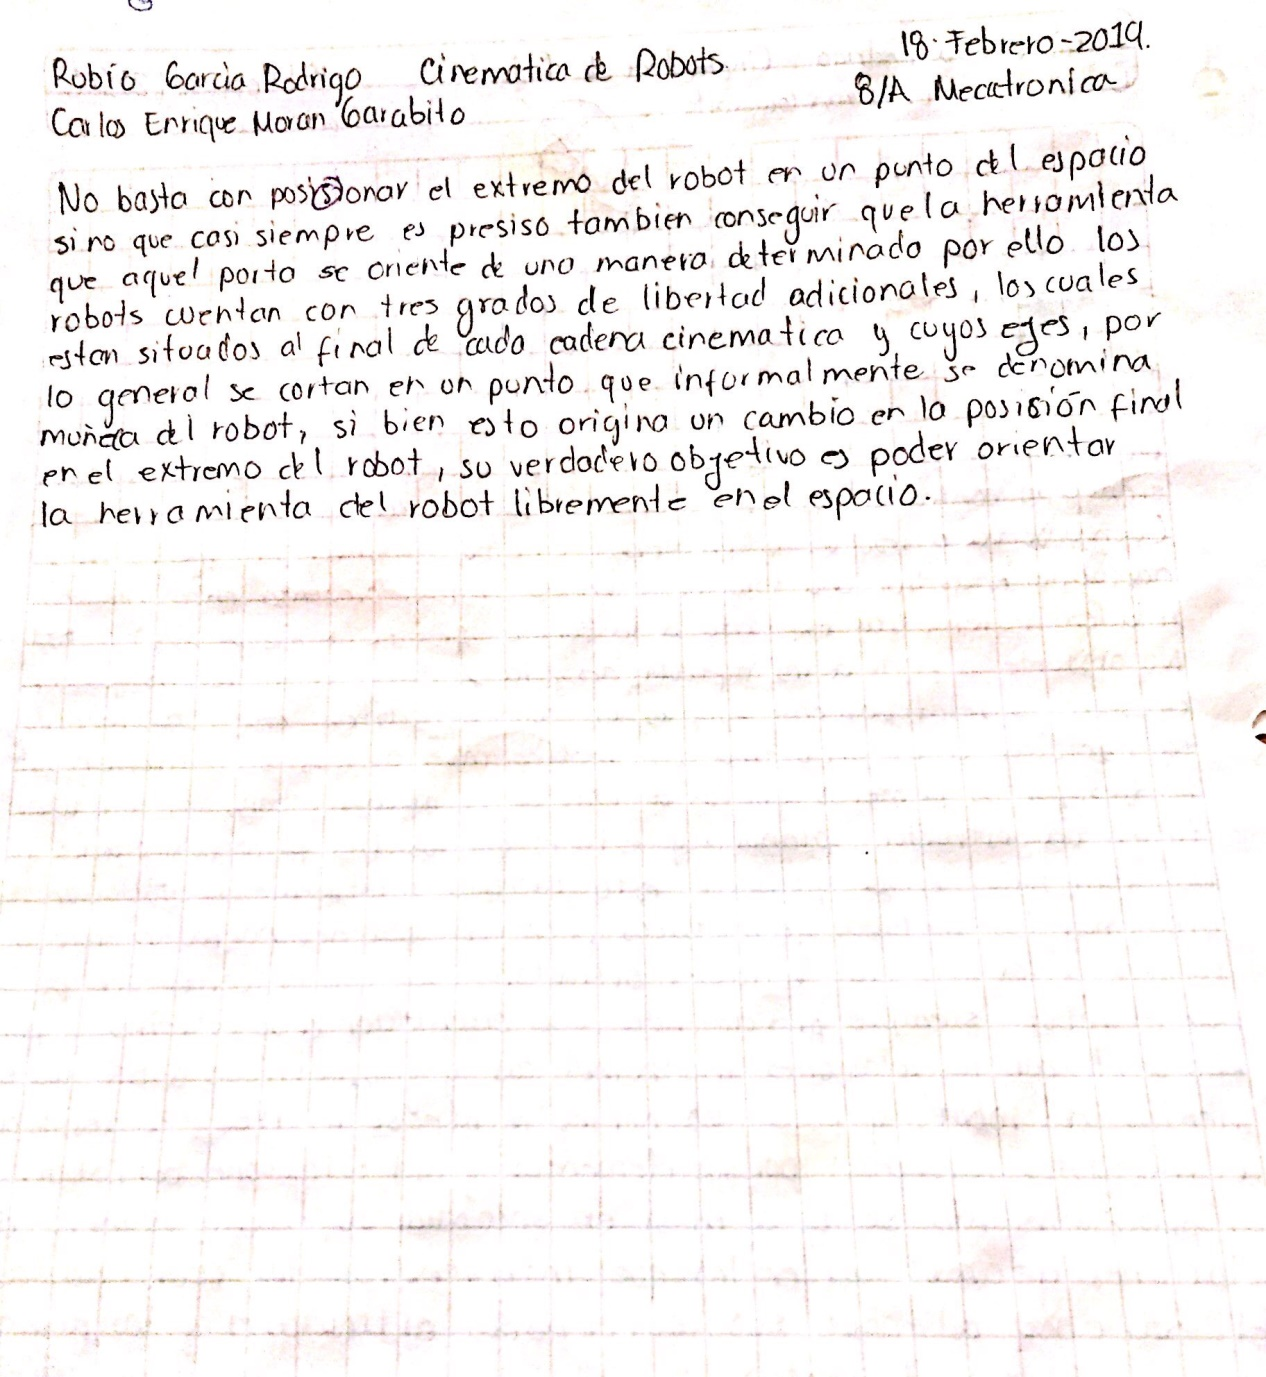 Rubio Garcia Rodrigo Cinematica de Robots 18-Febrero-2019.
Carlos Enrique Moran Garabito 8/A Mecatronica
No basta con posisionar el extremo del robot en un punto del espacio
sino que casi siempre es presiso tambien conseguir que la herramienta
que aquel porta se oriente de una manera determinado por ello los
robots cuentan con tres grados de libertad adicionales, los cuales
estan situados al final de cada cadena cinematica y cuyos ejes, por
lo general se cortan en un punto que informalmente se denomina
muñeca del robot, si bien esto origina un cambio en la posisión final
en el extremo del robot, su verdadero objetivo es poder orientar
la herramienta del robot libremente en el espacio.